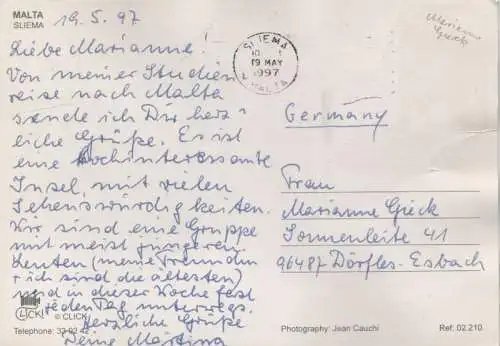 MALTA
SLIEMA
19. 5. 97
Liebe Marianne!
Von meiner Studien
reise nach Malta
sende ich Dir herz-
liche Grüße. Es ist
eine hochinteressante
Insel, mit vielen
Sehenswürdigkeiten.
Wir sind eine Gruppe
mit meist jüngeren
Leuten (meine Freundin
+ ich sind die ältesten)
und in dieser Woche fast
jeden Tag unterwegs.
Herzliche Grüße
Deine Martina
CLICK!
© CLICK!
Telephone: 33 02 42
SLIEMA
19 MAY
1997
MALTA
Marianne
Gieck
Germany
Frau
Marianne Gieck
Sonnenleite 41
96487 Dörfles-Esbach
Photography: Jean Cauchi
Ref: 02.210.